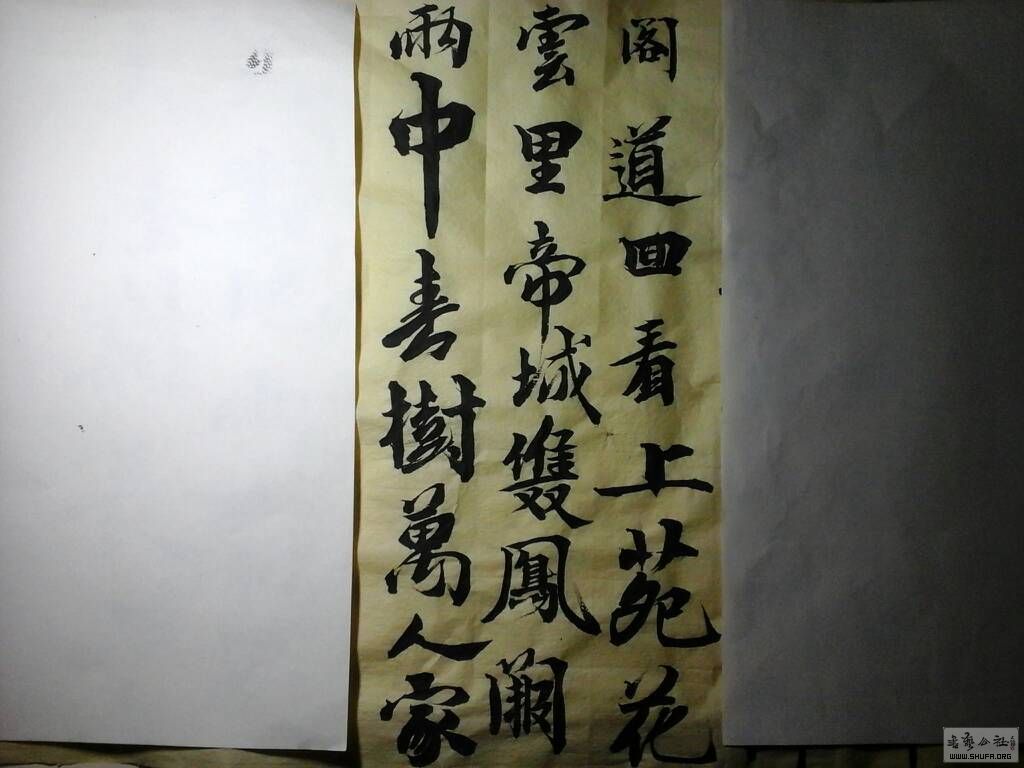 阁道回看上苑花
雲里帝城雙鳳闕
雨中春樹萬人家
书艺公社
WWW.SHUFA.ORG